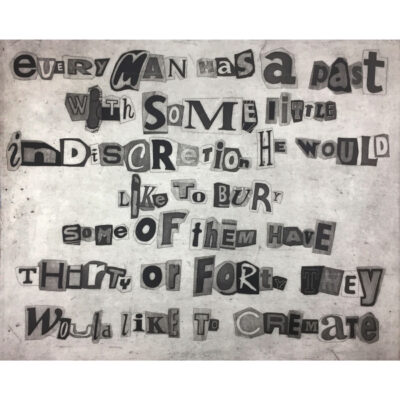 eVERY MAN HAS a past
WitH SOME little
inDiSCRetion HE WOULD
LiKe TO BURY
SOME OF tHEM HAVE
THirty OR FORty THEY
WOuld liKE TO CREMATE